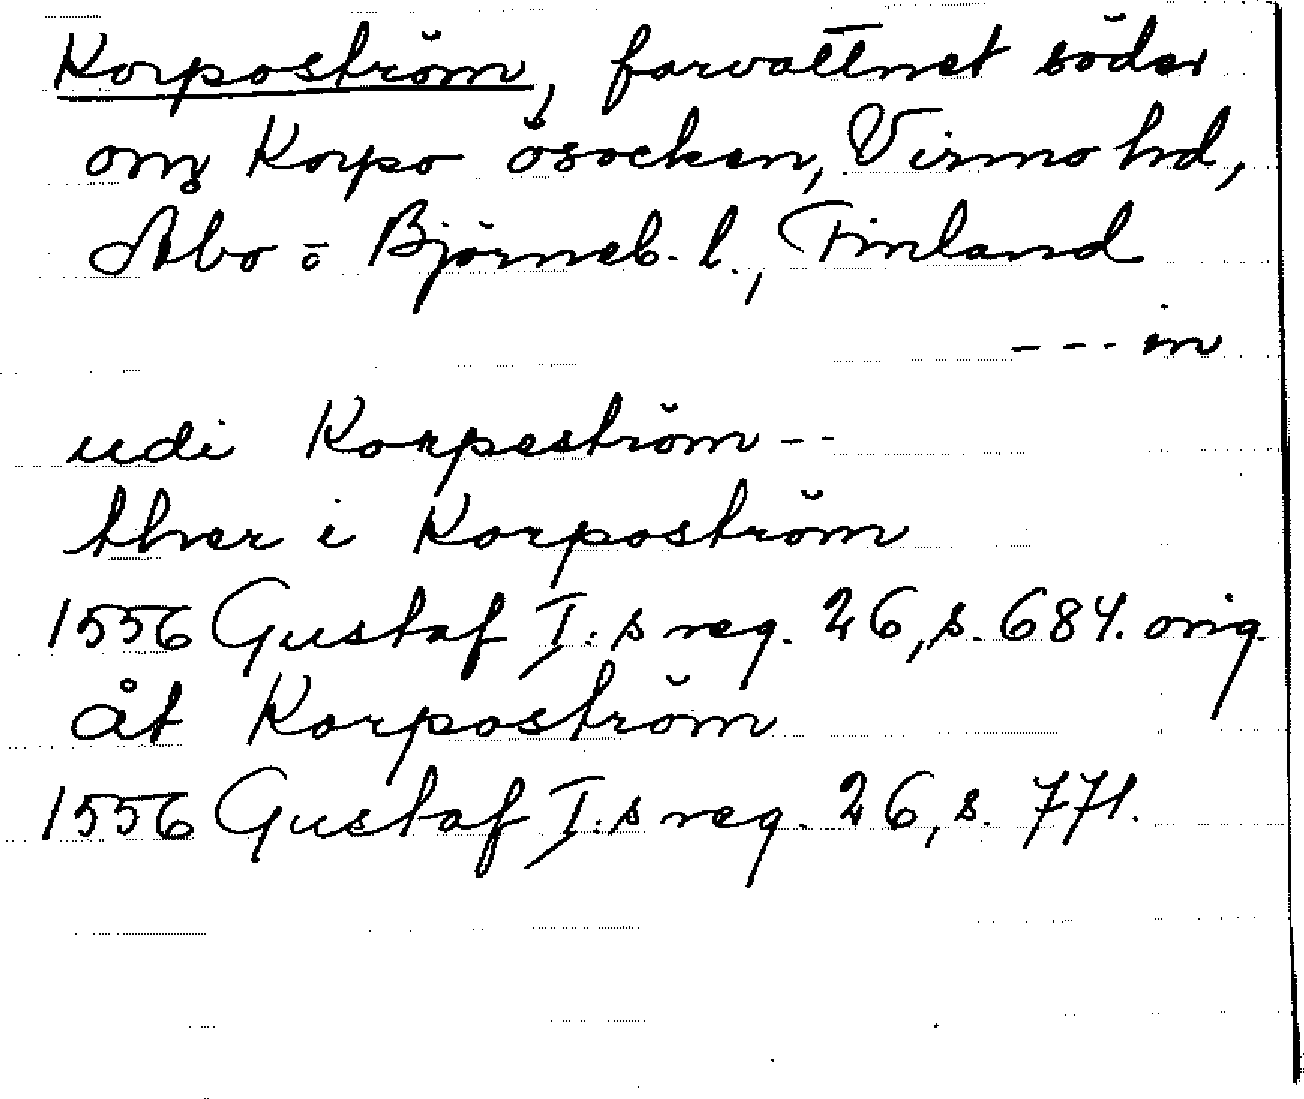 Korpoström, farvattnet söder
om Korpo ösocken, Virmo hd,
Åbo o Björneb. l., Finland
--- in
udi Korpeström --
thver i Korpoström
1556 Gustaf I:s reg. 26, s. 684. orig.
åt Korpoström
1556 Gustaf I:s reg. 26, s. 771.